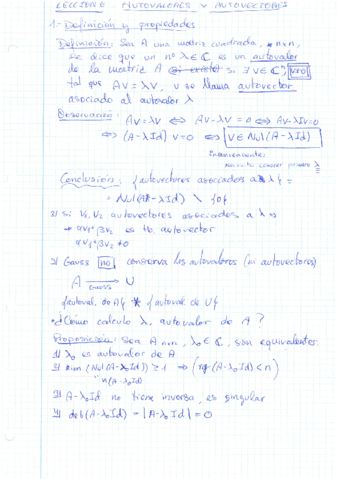 LECCIÓN 6: AUTOVALORES Y AUTOVECTORES
1.- Definición y propiedades
Definición: Sea A una matriz cuadrada, n×n,
se dice que un nº λ∈ℂ, es un autovalor
de la matriz A si ∃ v∈ℂⁿ, v≠0
tal que Av = λv, v se llama autovector
asociado al autovalor λ
Observación: Av = λv ⟺ Av - λv = 0 ⟺ Av - λIv = 0
⟺ (A - λId) v = 0 ⟺ v ∈ Nul(A - λId)
Inconveniente:
necesito conocer primero λ
Conclusión: {autovectores asociados a λ} =
= Nul(A - λId) \ {0}
2) si v₁, v₂ autovectores asociados a λ ⇒
⇒ αv₁+βv₂ es tb. autovector
αv₁+βv₂ ≠ 0
3) Gauss no conserva los autovalores (ni autovectores)
A → U
Gauss
{autoval. de A} ≠ {autoval de U}
¿Cómo calculo λ, autovalor de A?
Proposición: Sea A n×n, λ₀∈ℂ, son equivalentes:
1) λ₀ es autovalor de A
2) dim (Nul(A - λ₀Id)) ≥ 1 ⟹ (rg(A - λ₀Id) < n)
n(A - λ₀Id)
3) A - λ₀Id no tiene inversa, es singular
4) det(A - λ₀Id) = |A - λ₀Id| = 0